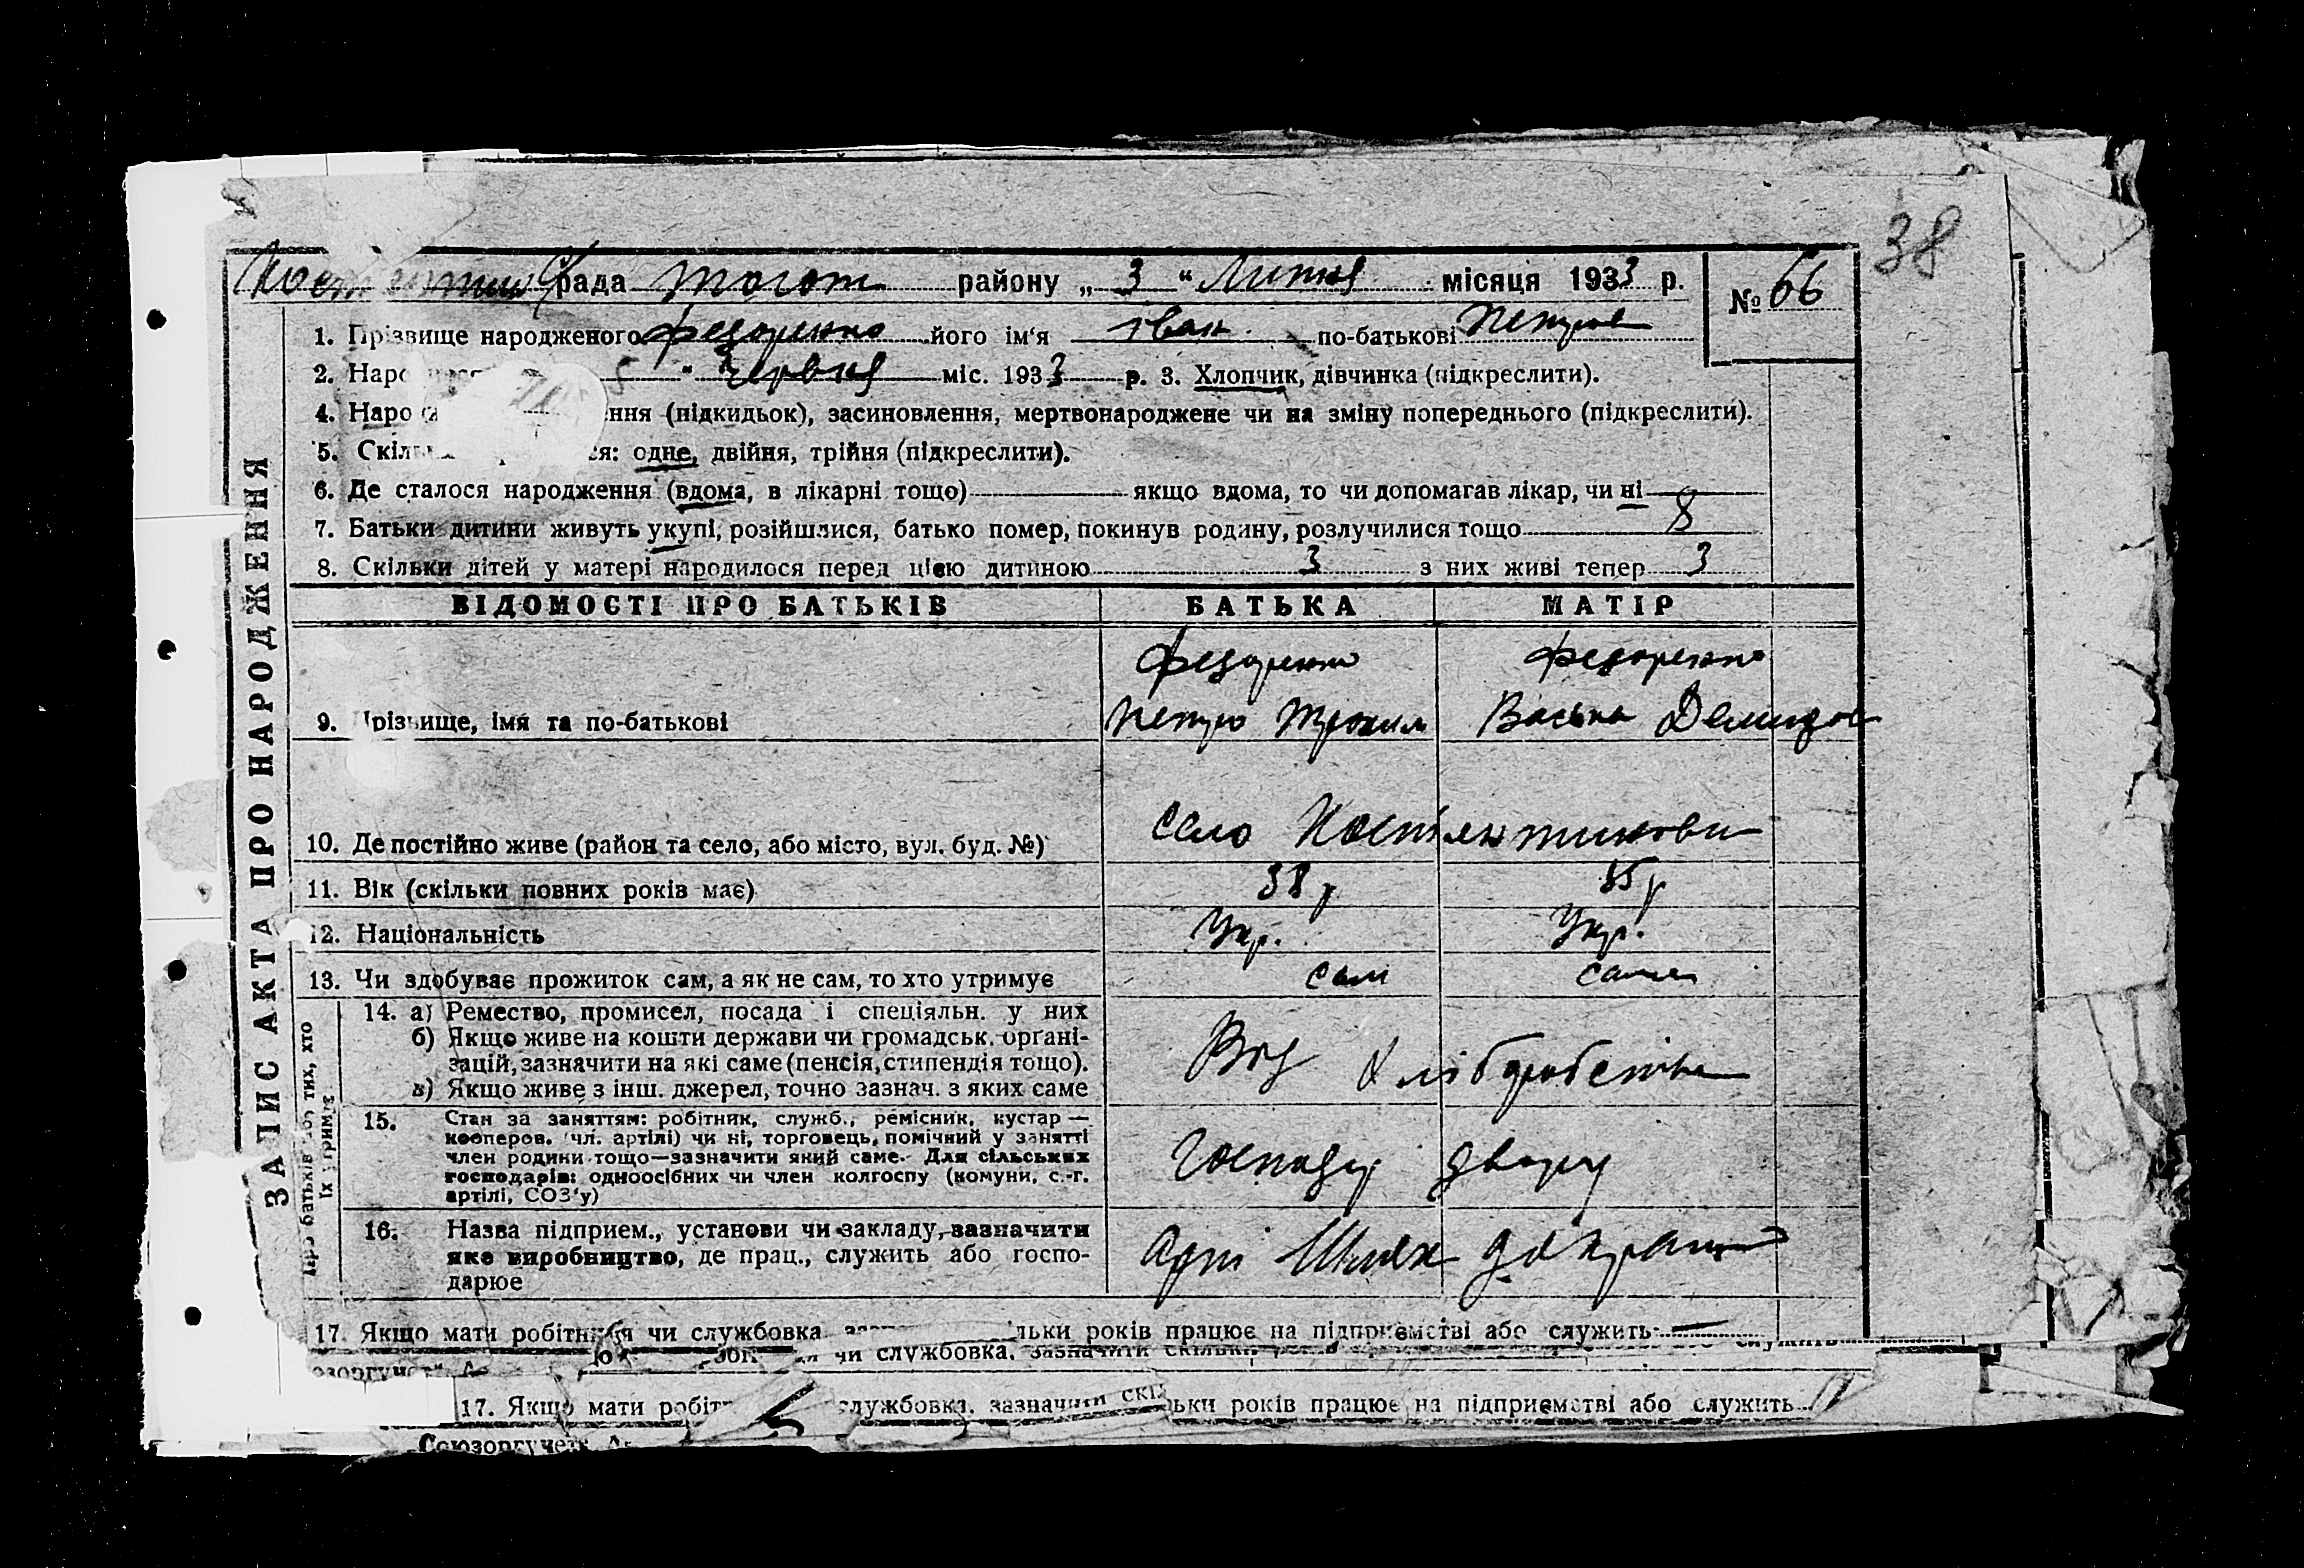 38
рада району „ 3 “ Липня місяця 1933 р. № 66
1. Прізвище народженого Федоренко його ім‘я Іван по-батькові Петров
2. “ Червня міс. 1933 р. 3. Хлопчик, дівчинка (підкреслити).
4. (підкидьок), засиновлення, мертвонароджене чи на зміну попереднього (підкреслити).
5. одне, двійня, трійня (підкреслити).
6. Де сталося народження (вдома, в лікарні тощо) якщо вдома, то чи допомагав лікар, чи ні
7. Батьки дитини живуть укупі, розійшлися, батько помер, покинув родину, розлучилися тощо
8. Скільки дітей у матері народилося перед цією дитиною 3 з них живі тепер 3
ВІДОМОСТІ ПРО БАТЬКІВ БАТЬКА МАТІР
Федоренко Федоренко
9. Прізвище, імя та по-батькові Петро Васька Демидов
10. Де постійно живе (район та село, або місто, вул. буд. №) село
11. Вік (скільки повних років має) 38 р 35 р
12. Національність Укр. Укр.
13. Чи здобуває прожиток сам, а як не сам, то хто утримує сам сама
14. а) Ремество, промисел, посада і спеціяльн. у них
б) Якщо живе на кошти держави чи громадськ. органі-
зацій, зазначити на які саме (пенсія, стипендія тощо).
в) Якщо живе з інш. джерел, точно зазнач. з яких саме
15. Стан за заняттям: робітник, служб., ремісник, кустар —
кооперов. (чл. артілі) чи ні, торговець, помічний у занятті
член родини тощо—зазначити який саме. Для сільських
господарів: одноосібних чи член колгоспу (комуни, с.-г.
артілі, СОЗ‘у)
Господар двору
16. Назва підприєм., установи чи закладу, зазначити
яке виробництво, де прац., служить або госпо-
дарює
17. Якщо мати робітниця чи службовка, скільки років працює на підприємстві або служить —
чи службовка, зазначити скільки
17. Якщо мати службовка, зазначити скільки років працює на підприємстві або служить
ЗАПИС АКТА ПРО НАРОДЖЕННЯ